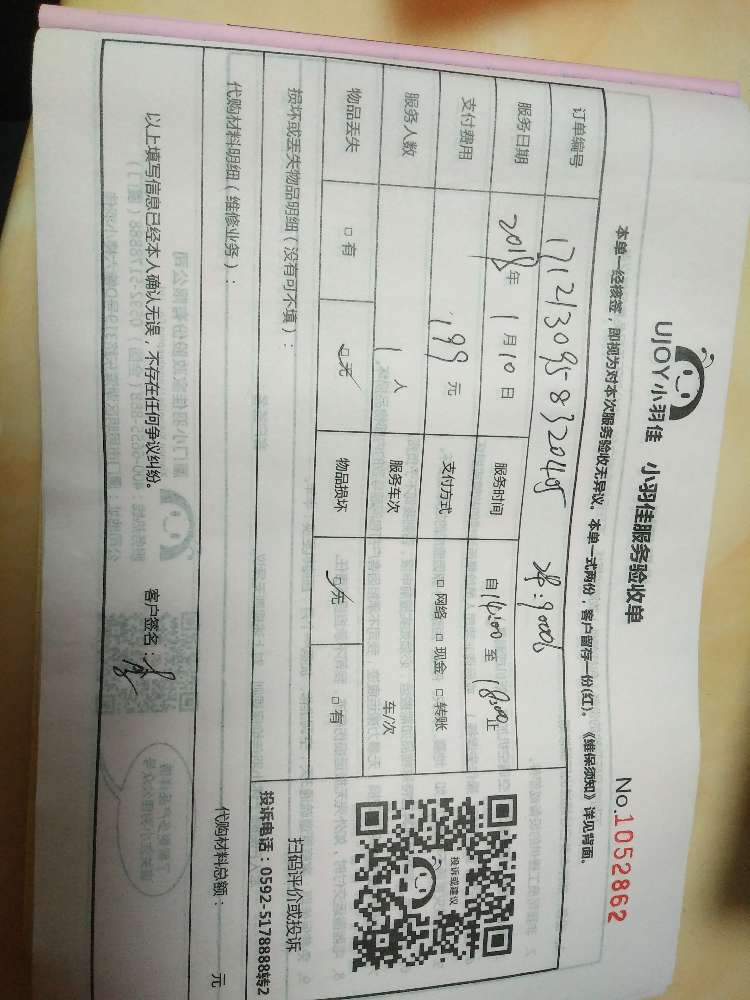 UJOY小羽佳 小羽佳服务验收单 No.1052862
本单一经核签，即视为对本次服务验收无异议。本单一式两份，客户留存一份(红)。《维保须知》详见背面。
订单编号
服务日期 2018年 1月10日 服务时间 自14:00至18:00止
支付费用 199元 支付方式 □网络 □现金 □转账
服务人数 1人 服务车次 车/次
物品丢失 □有 □无 物品损坏 □无 □有
投诉或建议
扫码评价或投诉
投诉电话：0592-5178888转2
损坏或丢失物品明细（没有可不填）：
代购材料明细（维修业务）： 代购材料总额： 元
以上填写信息已经本人确认无误，不存在任何争议纠纷。 客户签名：